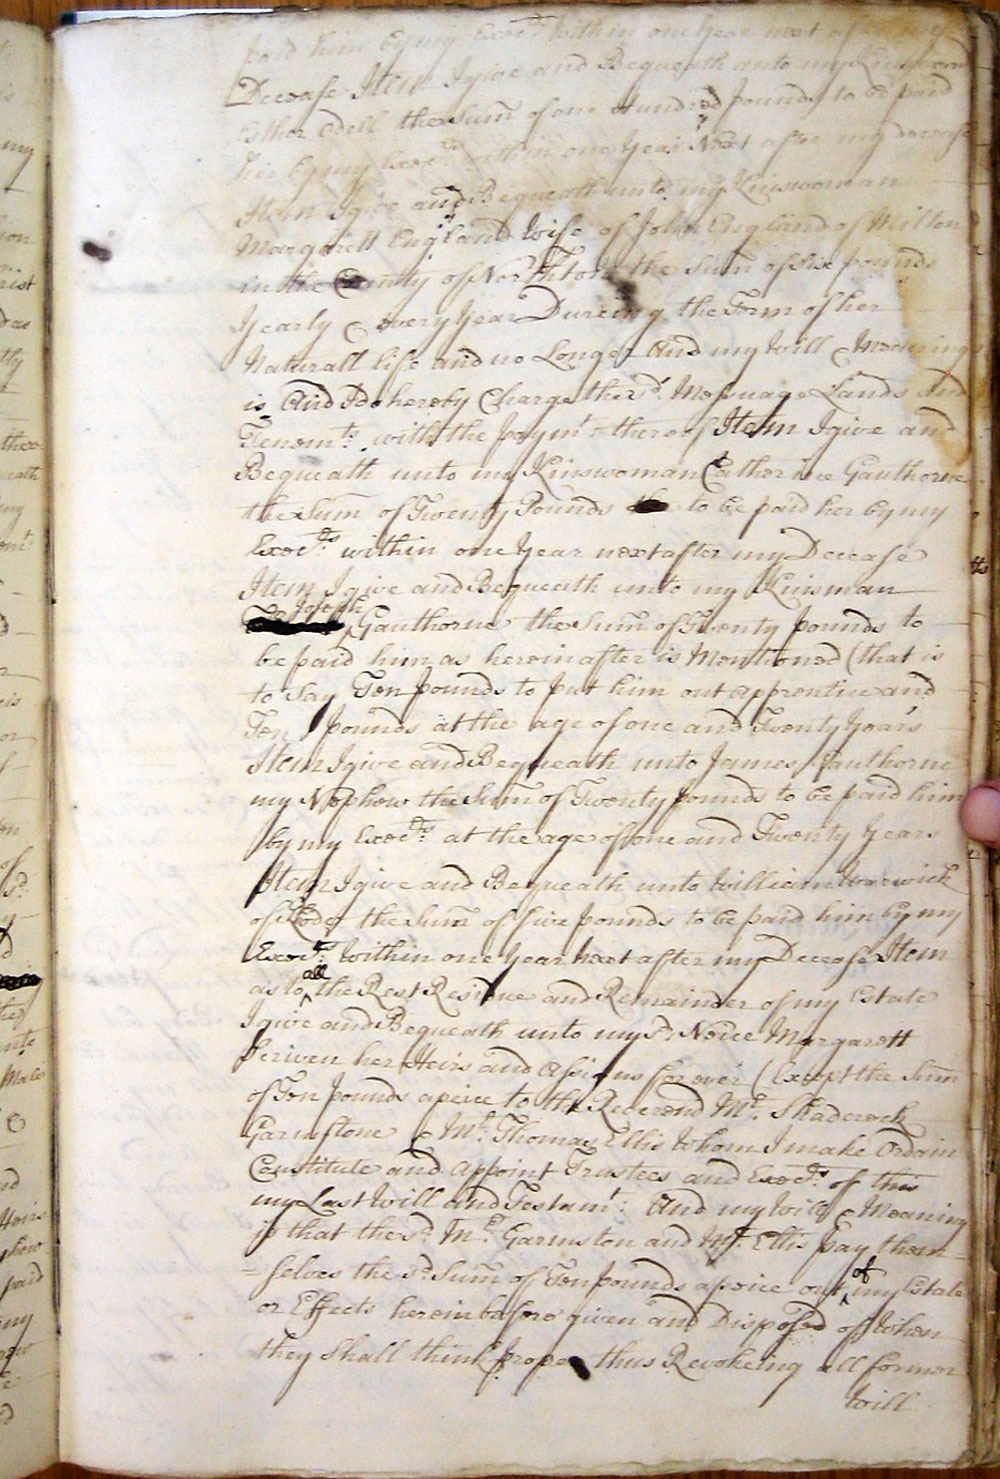 paid him by my Exec.rs within one Year next after my
Decease Item I give and Bequeath unto my Kinswoman
Esther Odell the Sum of one Hundred pounds to be paid
her by my Exec.rs within one Year Next after my decease
Item I give and Bequeath unto my Kinswoman
Margarett England wife of John England of Milton
in the County of North.ton the Sum of Six pounds
yearly & every Year Dureing the Term of her
Naturall life and no Longer And my Will & Meaning
is And I do hereby Charge the s.d Messuage Lands and
Tenem.ts with the paym.t thereof Item I give and
Bequeath unto my Kinswoman Catherine Gauthorne
the Sum of Twenty Pounds to be paid her by my
Exec.rs within one Year next after my Decease
Item I give and Bequeath unto my Kinsman
Joseph Gauthorne the Sum of Twenty pounds to
be paid him as hereinafter is Mentioned (that is
to Say Ten pounds to put him out apprentice and
Ten pounds at the age of one and Twenty Years
Item I give and Bequeath unto James Gauthorne
my Nephew the Sum of Twenty pounds to be paid him
by my Exec.rs at the age of one and Twenty Years
Item I give and Bequeath unto William Warwick
of the Sum of five pounds to be paid him by my
Exec.rs within one Year next after my Decease Item
as to all the Rest Residue and Remainder of my Estate
I give and Bequeath unto my s.d Neice Margarett
Scriven her Heirs and Assigns for ever (Except the Sum
of Ten pounds apeice to the Reverend M.r Shaderock
Garmstone & M.r Thomas Ellis whom I make Ordain
Constitute and Appoint Trustees and Exec.rs of this
my Last Will and Testam.t And my Will & Meaning
is that the s.d M.r Garmston and M.r Ellis pay them
=selves the s.d Sum of Ten pounds apeice out of my Estate
or Effects hereinbefore given and Disposed of when
they Shall think proper thus Revokeing all former
Will